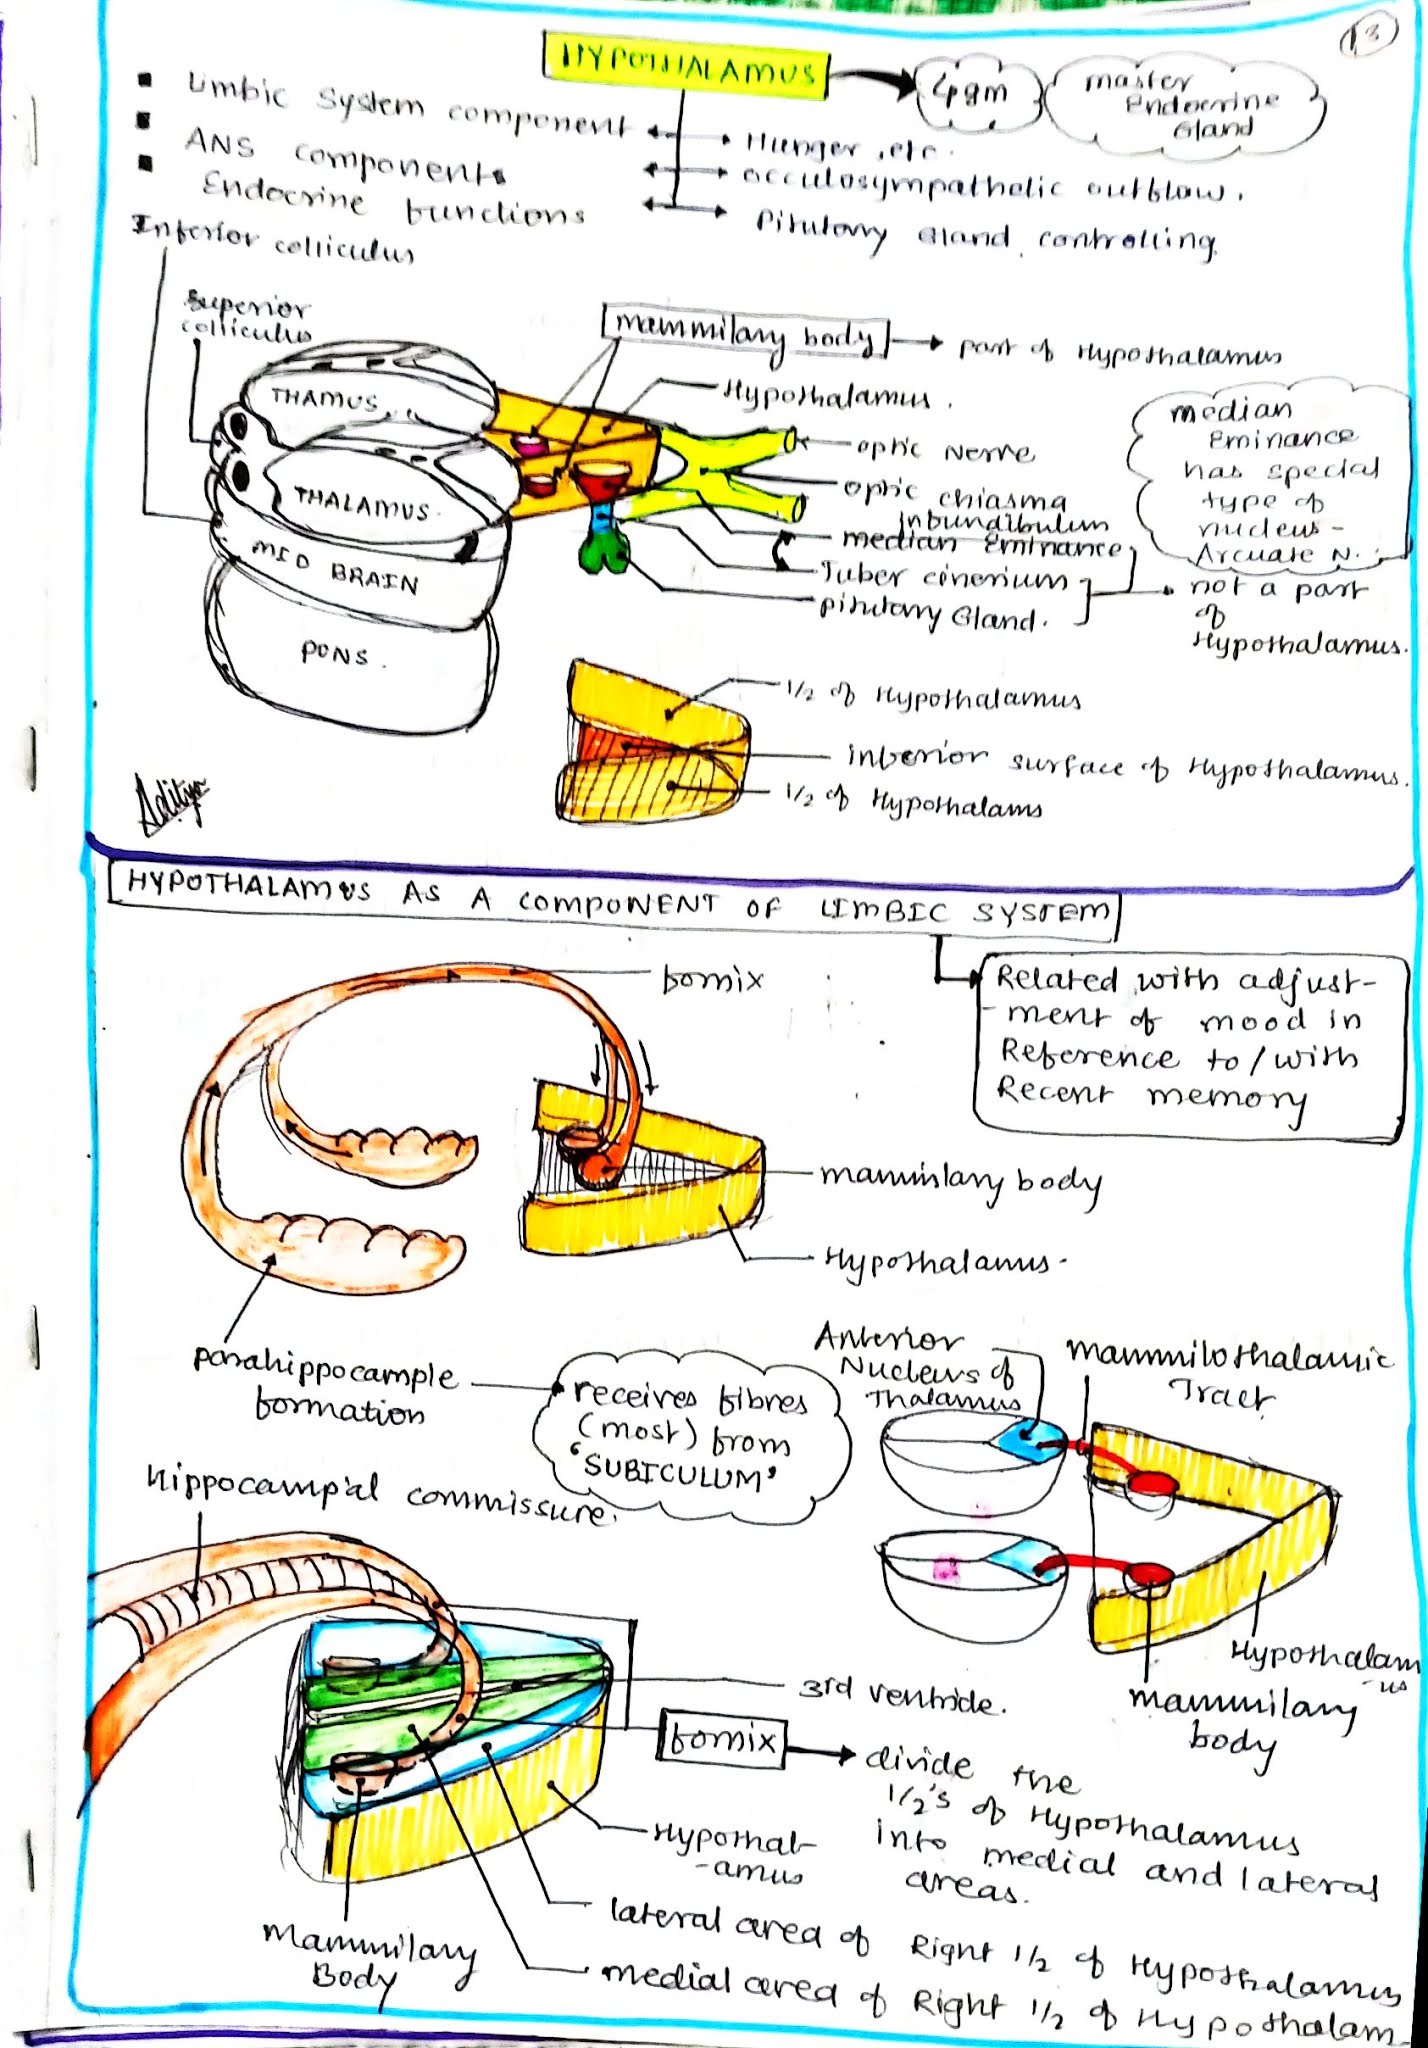 13
HYPOTHALAMUS
4gm
master
Endocrine
Gland
▪ Limbic System component
Hunger, etc.
▪ ANS components
occulosympathetic outflow.
▪ Endocrine functions
Pitutary Gland controlling
Inferior colliculus
Superior
colliculus
mammilary body
part of Hypothalamus
Hypothalamus.
THAMUS
THALAMUS
MID BRAIN
PONS.
optic Nerve
optic chiasma
infundibulum
median Eminance
Tuber cinerium
Pitutary Gland.
median
Eminance
has special
type of
nucleus-
Arcuate N.
not a part
of
Hypothalamus.
1/2 of Hypothalamus
inferior surface of Hypothalamus.
1/2 of Hypothalams
Aditya
HYPOTHALAMUS AS A COMPONENT OF LIMBIC SYSTEM
Related with adjust-
-ment of mood in
Reference to/with
Recent memory
fornix
mammilary body
Hypothalamus.
Parahippocample
formation
receives fibres
(most) from
'SUBICULUM'
Anterior
Nucleus of
Thalamus
mammilothalamic
Tract
Hypothalam
-us
mammilary
body
hippocampal commissure.
3rd ventricle.
fornix
divide the
1/2's of Hypothalamus
into medial and lateral
areas.
Hypothal-
-amus
lateral area of Right 1/2 of Hypothalamus
medial area of Right 1/2 of Hypothalam-
Mammilary
Body